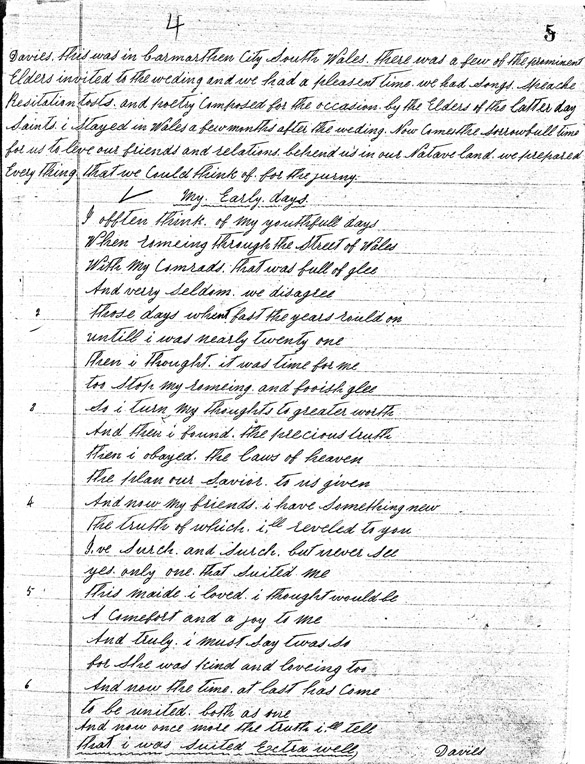 4
5
Davies. this was in Carmarthen City South Wales. there was a few of the prominent
Elders invited to the weding and we had a pleasent time. we had songs. Speache
Resitation tosts. and poetry Composed for the occasion. by the Elders of the latter day
Saints. i stayed in Wales a few months after the weding. Now Comes the Sorrowfull time
for us to leve our friends and relations. behend us in our Natave land. we prepared
Every thing. that we Could think of. for the jurny.
My. Early. days.
I offten think. of My youthfull days
When romeing through the Street of Wales
With My Comrads. that was full of glee
And verry Seldom. we disagree
2 those days whent fast the years rould on
untill i was nearly twenty one
then i thought. it was time for me
too Stop my romeing. and fooish glee
3 So i turn my thoughts to greater worth
And then i found. the precious truth
then i obayed. the laws of heaven
the plan our Savior. to us given
4 And now My friends. i have Something new
The truth of which. i'll reveled to you
I.ve Surch. and Surch. but never see
yes. only one. that Suited me
5 this maide i loved. i thought would be
A Comefort and a joy to me
And truly. i must Say twas so
for She was kind and loveing too
6 And now the time. at last has Come
to be united. both as one
And now once more the truth i'll tell
that i was Suited Extra well
Davies